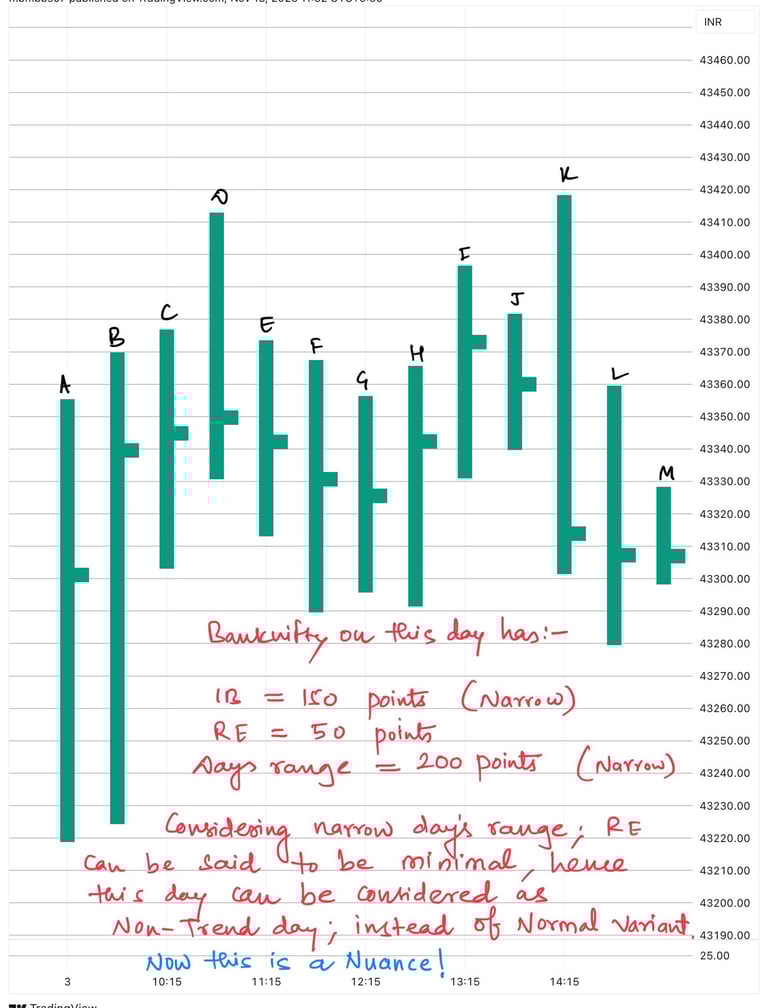 INR
43460.00
43450.00
43440.00
43430.00
43420.00
43410.00
43400.00
43390.00
43380.00
43370.00
43360.00
43350.00
43340.00
43330.00
43320.00
43310.00
43300.00
43290.00
43280.00
43270.00
43260.00
43250.00
43240.00
43230.00
43220.00
43210.00
43200.00
43190.00
25.00
A
B
C
D
E
F
G
H
I
J
K
L
M
Banknifty on this day has:-
IB = 150 points (Narrow)
RE = 50 points
Days range = 200 points (Narrow)
Considering narrow day's range; RE
can be said to be minimal, hence
this day can be considered as
Non-Trend day; instead of Normal Variant.
Now this is a Nuance!
3 10:15 11:15 12:15 13:15 14:15
TradingView